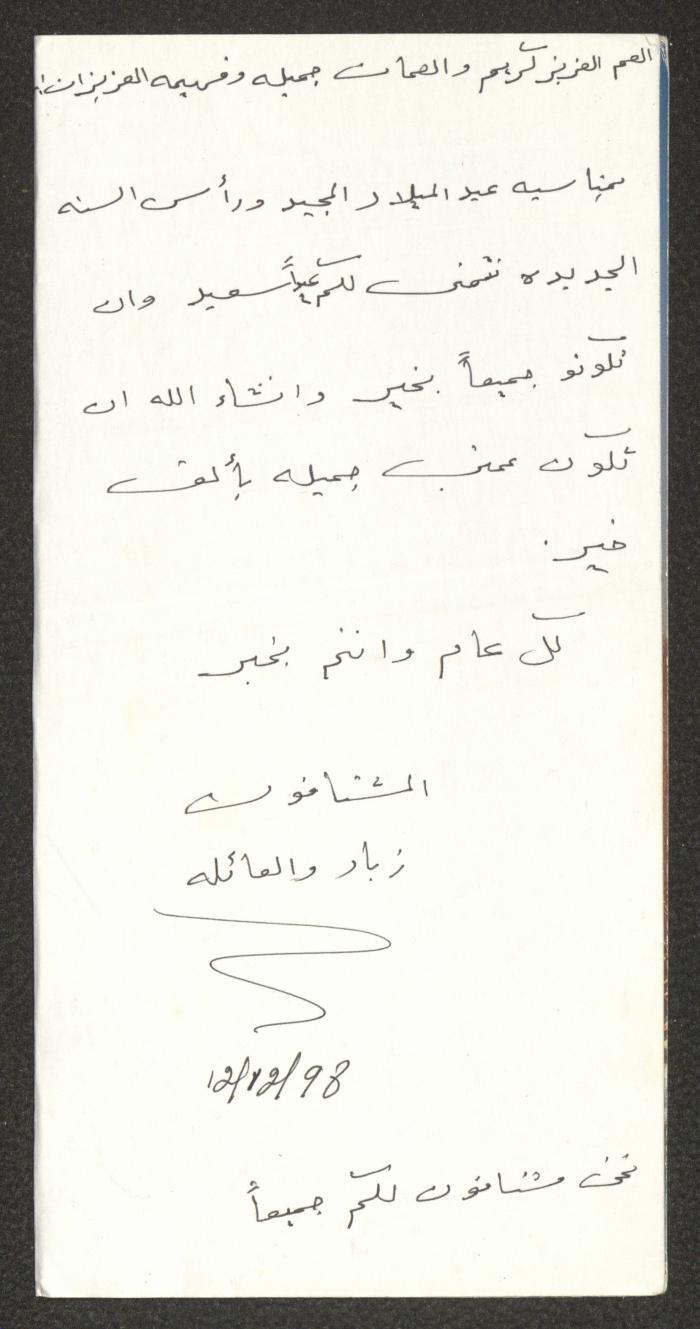 العم العزيز كريم والعمات جميله وفهيمه العزيزات
بمناسبه عيد الميلاد المجيد ورأس السنه
الجديده نتمنى لكم عيداً سعيد وان
تكونو جميعاً بخير وانشاء الله ان
تكون عمتي جميله بألف
خير.
كل عام وانتم بخير
المشتاقون
زياد والعائله
12/12/98
نحن مشتاقون لكم جميعاً